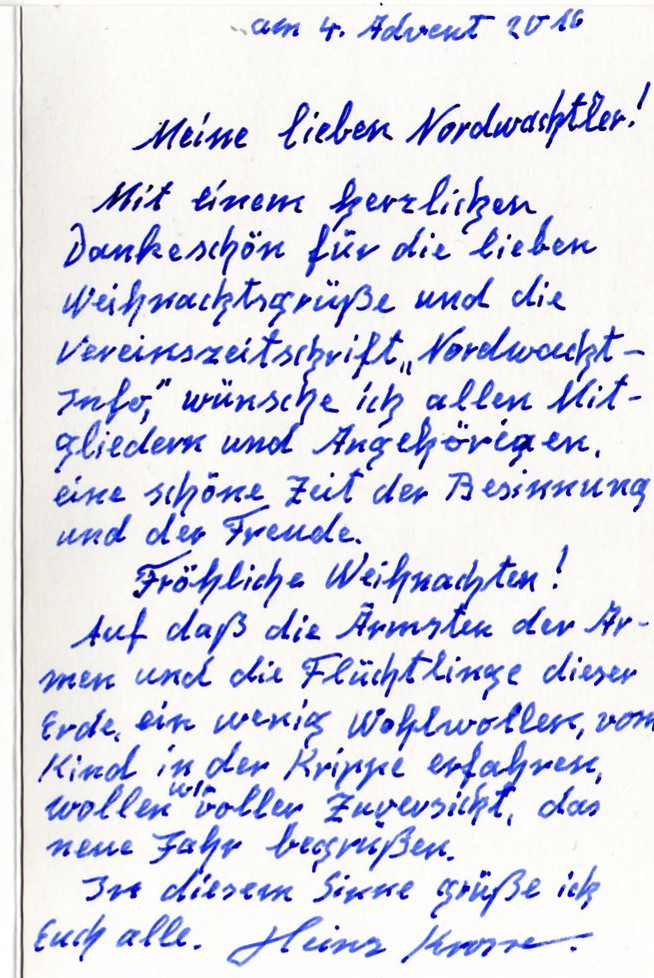 am 4. Advent 2016
Meine lieben Nordwachtler!
Mit einem herzlichen
Dankeschön für die lieben
Weihnachtsgrüße und die
Vereinszeitschrift „Nordwacht-
Info," wünsche ich allen Mit-
gliedern und Angehörigen,
eine schöne Zeit der Besinnung
und der Freude.
Fröhliche Weihnachten!
Auf daß die Ärmsten der Ar-
men und die Flüchtlinge dieser
Erde, ein wenig Wohlwollen, vom
Kind in der Krippe erfahren,
wollen wir voller Zuversicht, das
neue Jahr begrüßen.
In diesem Sinne grüße ich
Euch alle. Heinz